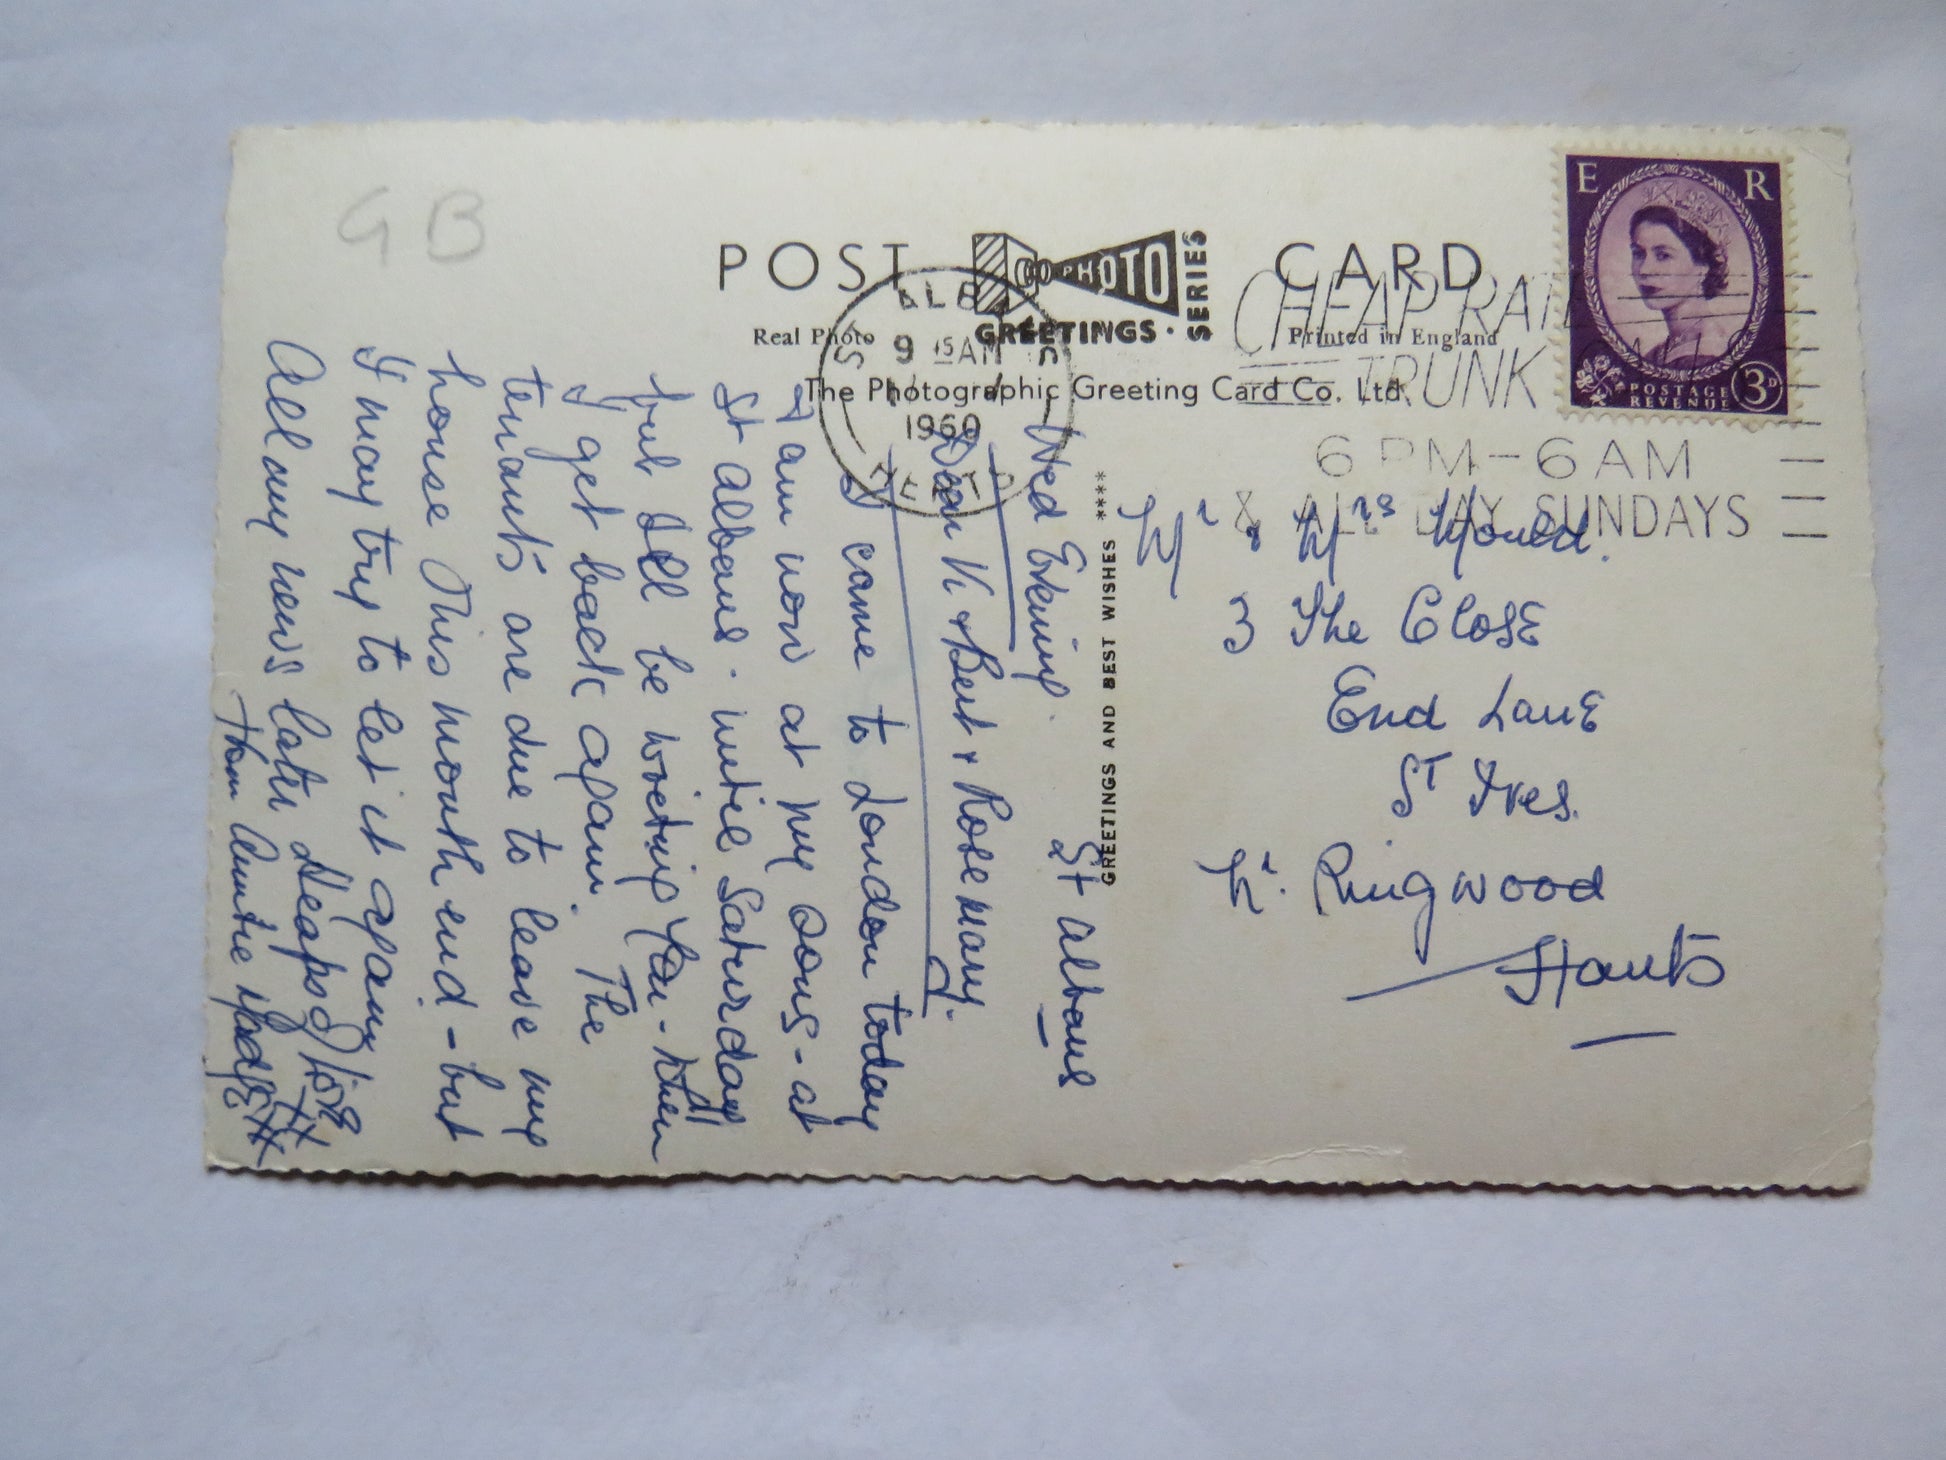 GB
POST CARD
GOPHOTO
GREETINGS · SERIES
Real Photo
Printed in England
The Photographic Greeting Card Co. Ltd.
E R
POSTAGE
REVENUE
3D
ST ALBANS
9 15 AM
1960
HERTS
CHEAP RATE
TRUNK CALLS
6 PM-6 AM
& ALL DAY SUNDAYS
GREETINGS AND BEST WISHES ****
St Albans
Wed Evening.
Dear Vi & Bert & Rosemary.
I came to London today
& am now at my sons - at
St Albans. until Saturday
but Ill be writing you - when
I get back again. The
tenants are due to leave my
house this month end - but
I may try to let it again
All my news later Heaps of love
from Auntie Madge XX
Mr & Mrs Mould.
3 The Close
End Lane
St Ives.
Nr. Ringwood
Hants